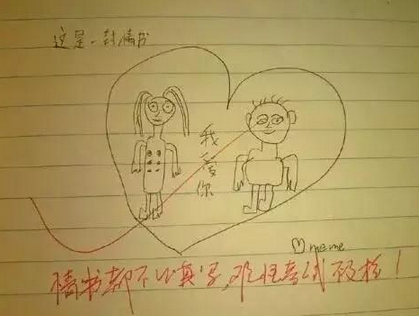 这是一封情书
我爱你
meme
情书都不认真写,难怪考试不及格!